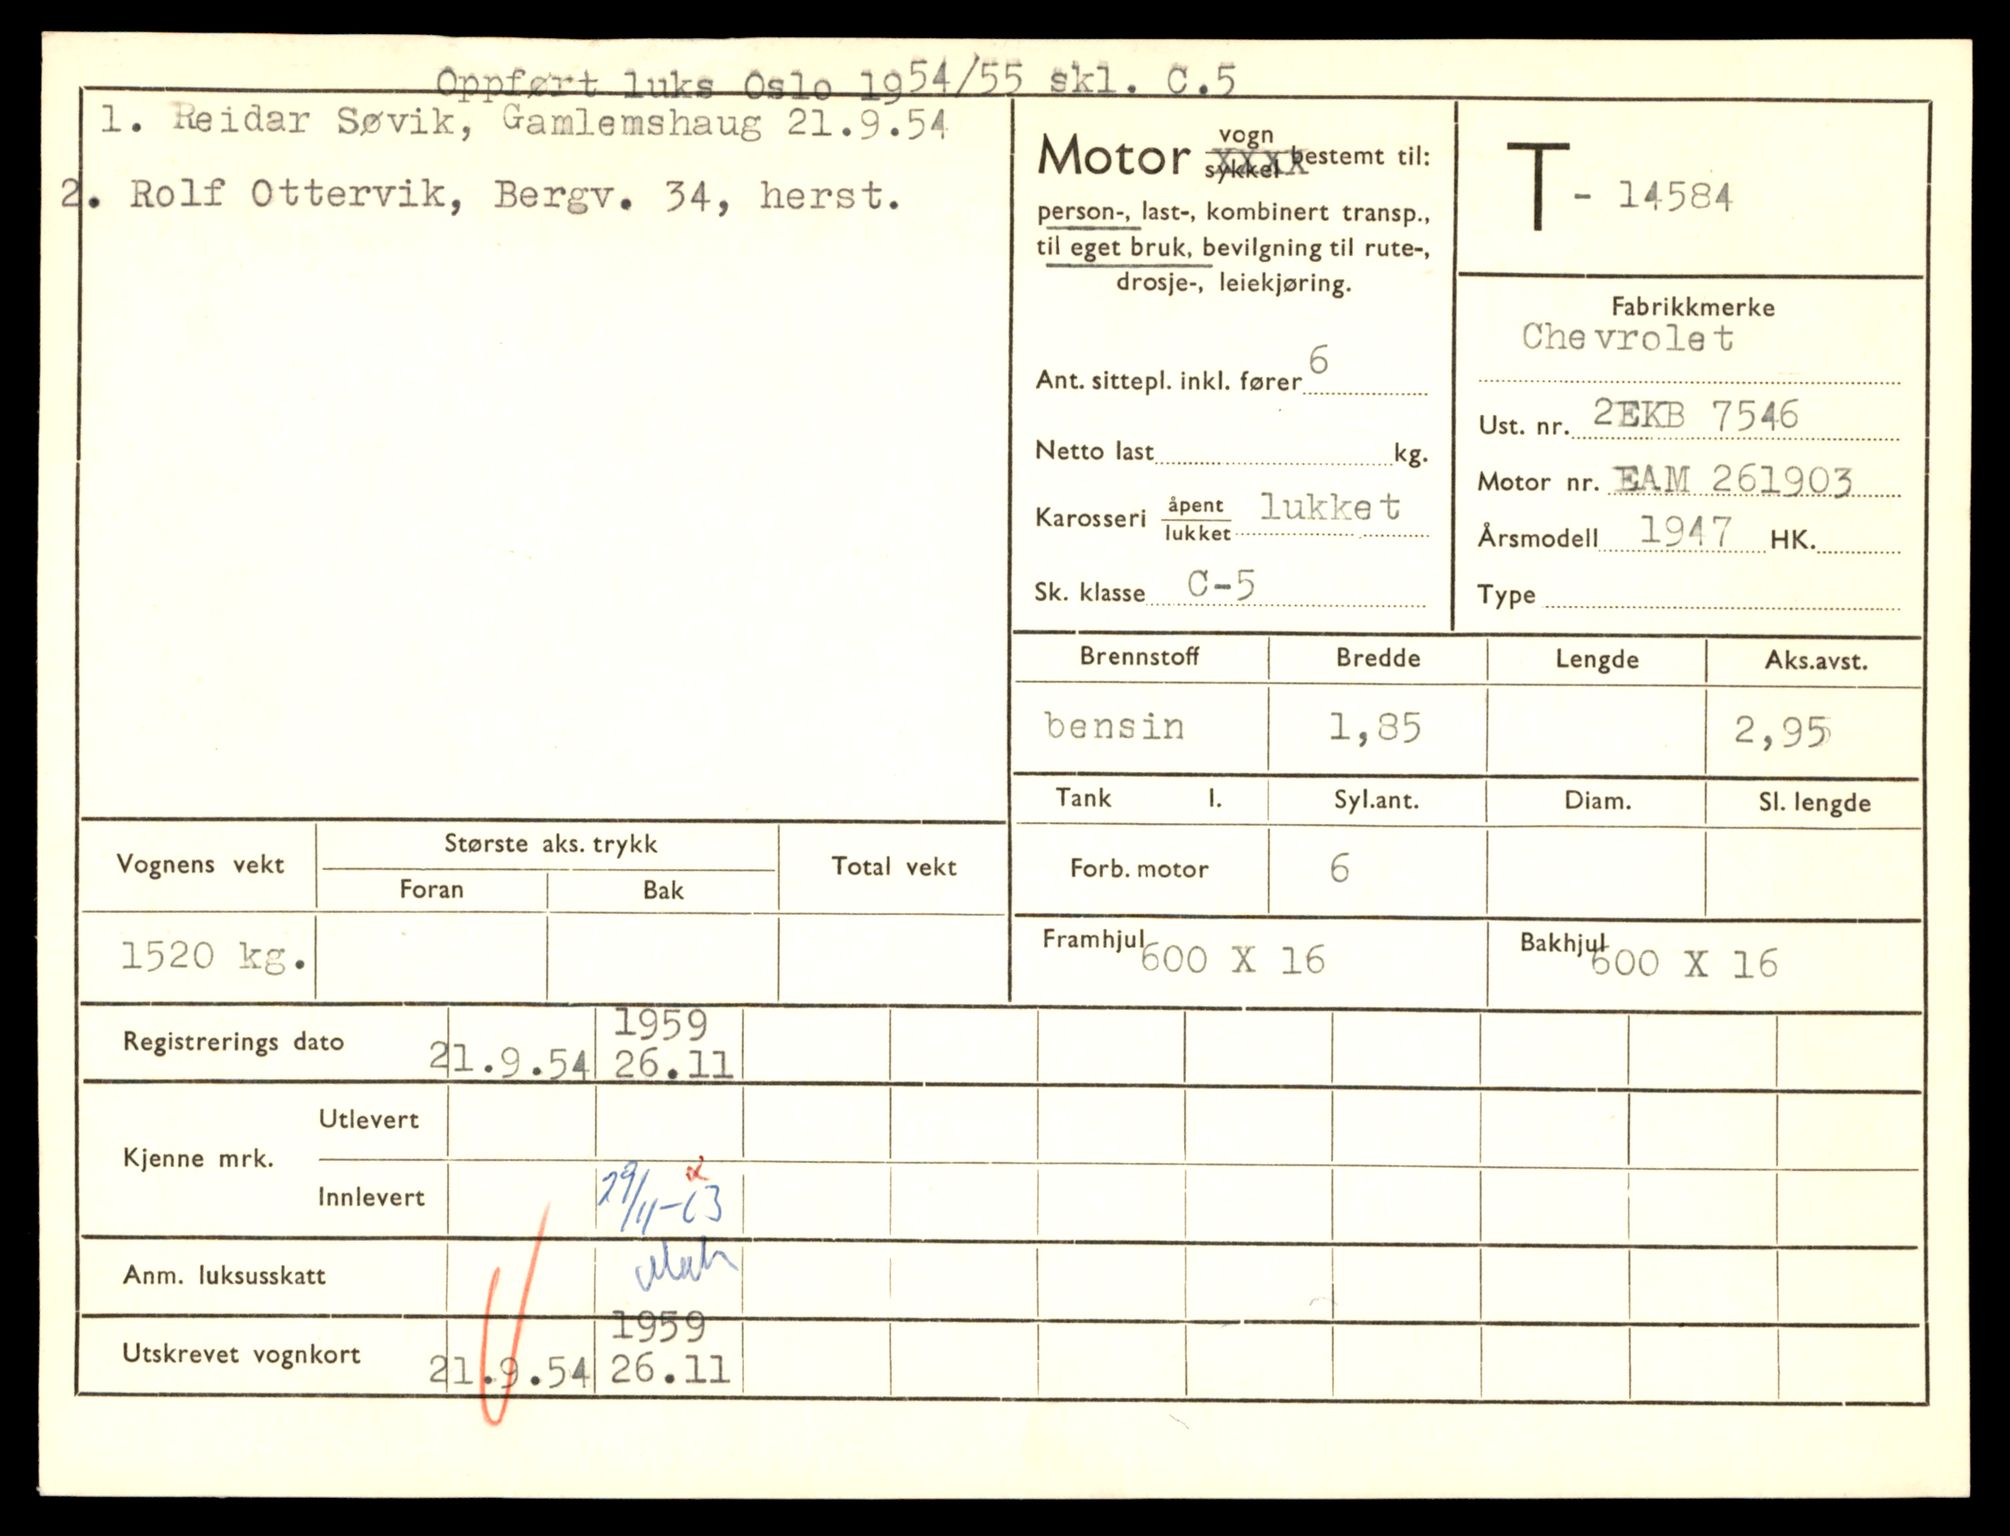 Oppført luks Oslo 1954/55 skl. C.5
1. Reidar Søvik, Gamlemshaug 21.9.54
2. Rolf Ottervik, Bergv. 34, herst.
Motor vogn
sykkel bestemt til:
person-, last-, kombinert transp.,
til eget bruk, bevilgning til rute-,
drosje-, leiekjøring.
Ant. sittepl. inkl. fører 6
Netto last kg.
Karosseri åpent
lukket lukket
Sk. klasse C-5
T - 14584
Fabrikkmerke
Chevrolet
Ust. nr. 2EKB 7546
Motor nr. EAM 261903
Årsmodell 1947 HK.
Type
Brennstoff Bredde Lengde Aks.avst.
bensin 1,85 2,95
Tank l. Syl.ant. Diam. Sl. lengde
Forb. motor 6
Framhjul 600 X 16 Bakhjul 600 X 16
Vognens vekt Største aks. trykk Total vekt
Foran Bak
1520 kg.
Registrerings dato 21.9.54 1959
26.11
Kjenne mrk. Utlevert
Innlevert 29/11-63
Anm. luksusskatt
Utskrevet vognkort 21.9.54 1959
26.11